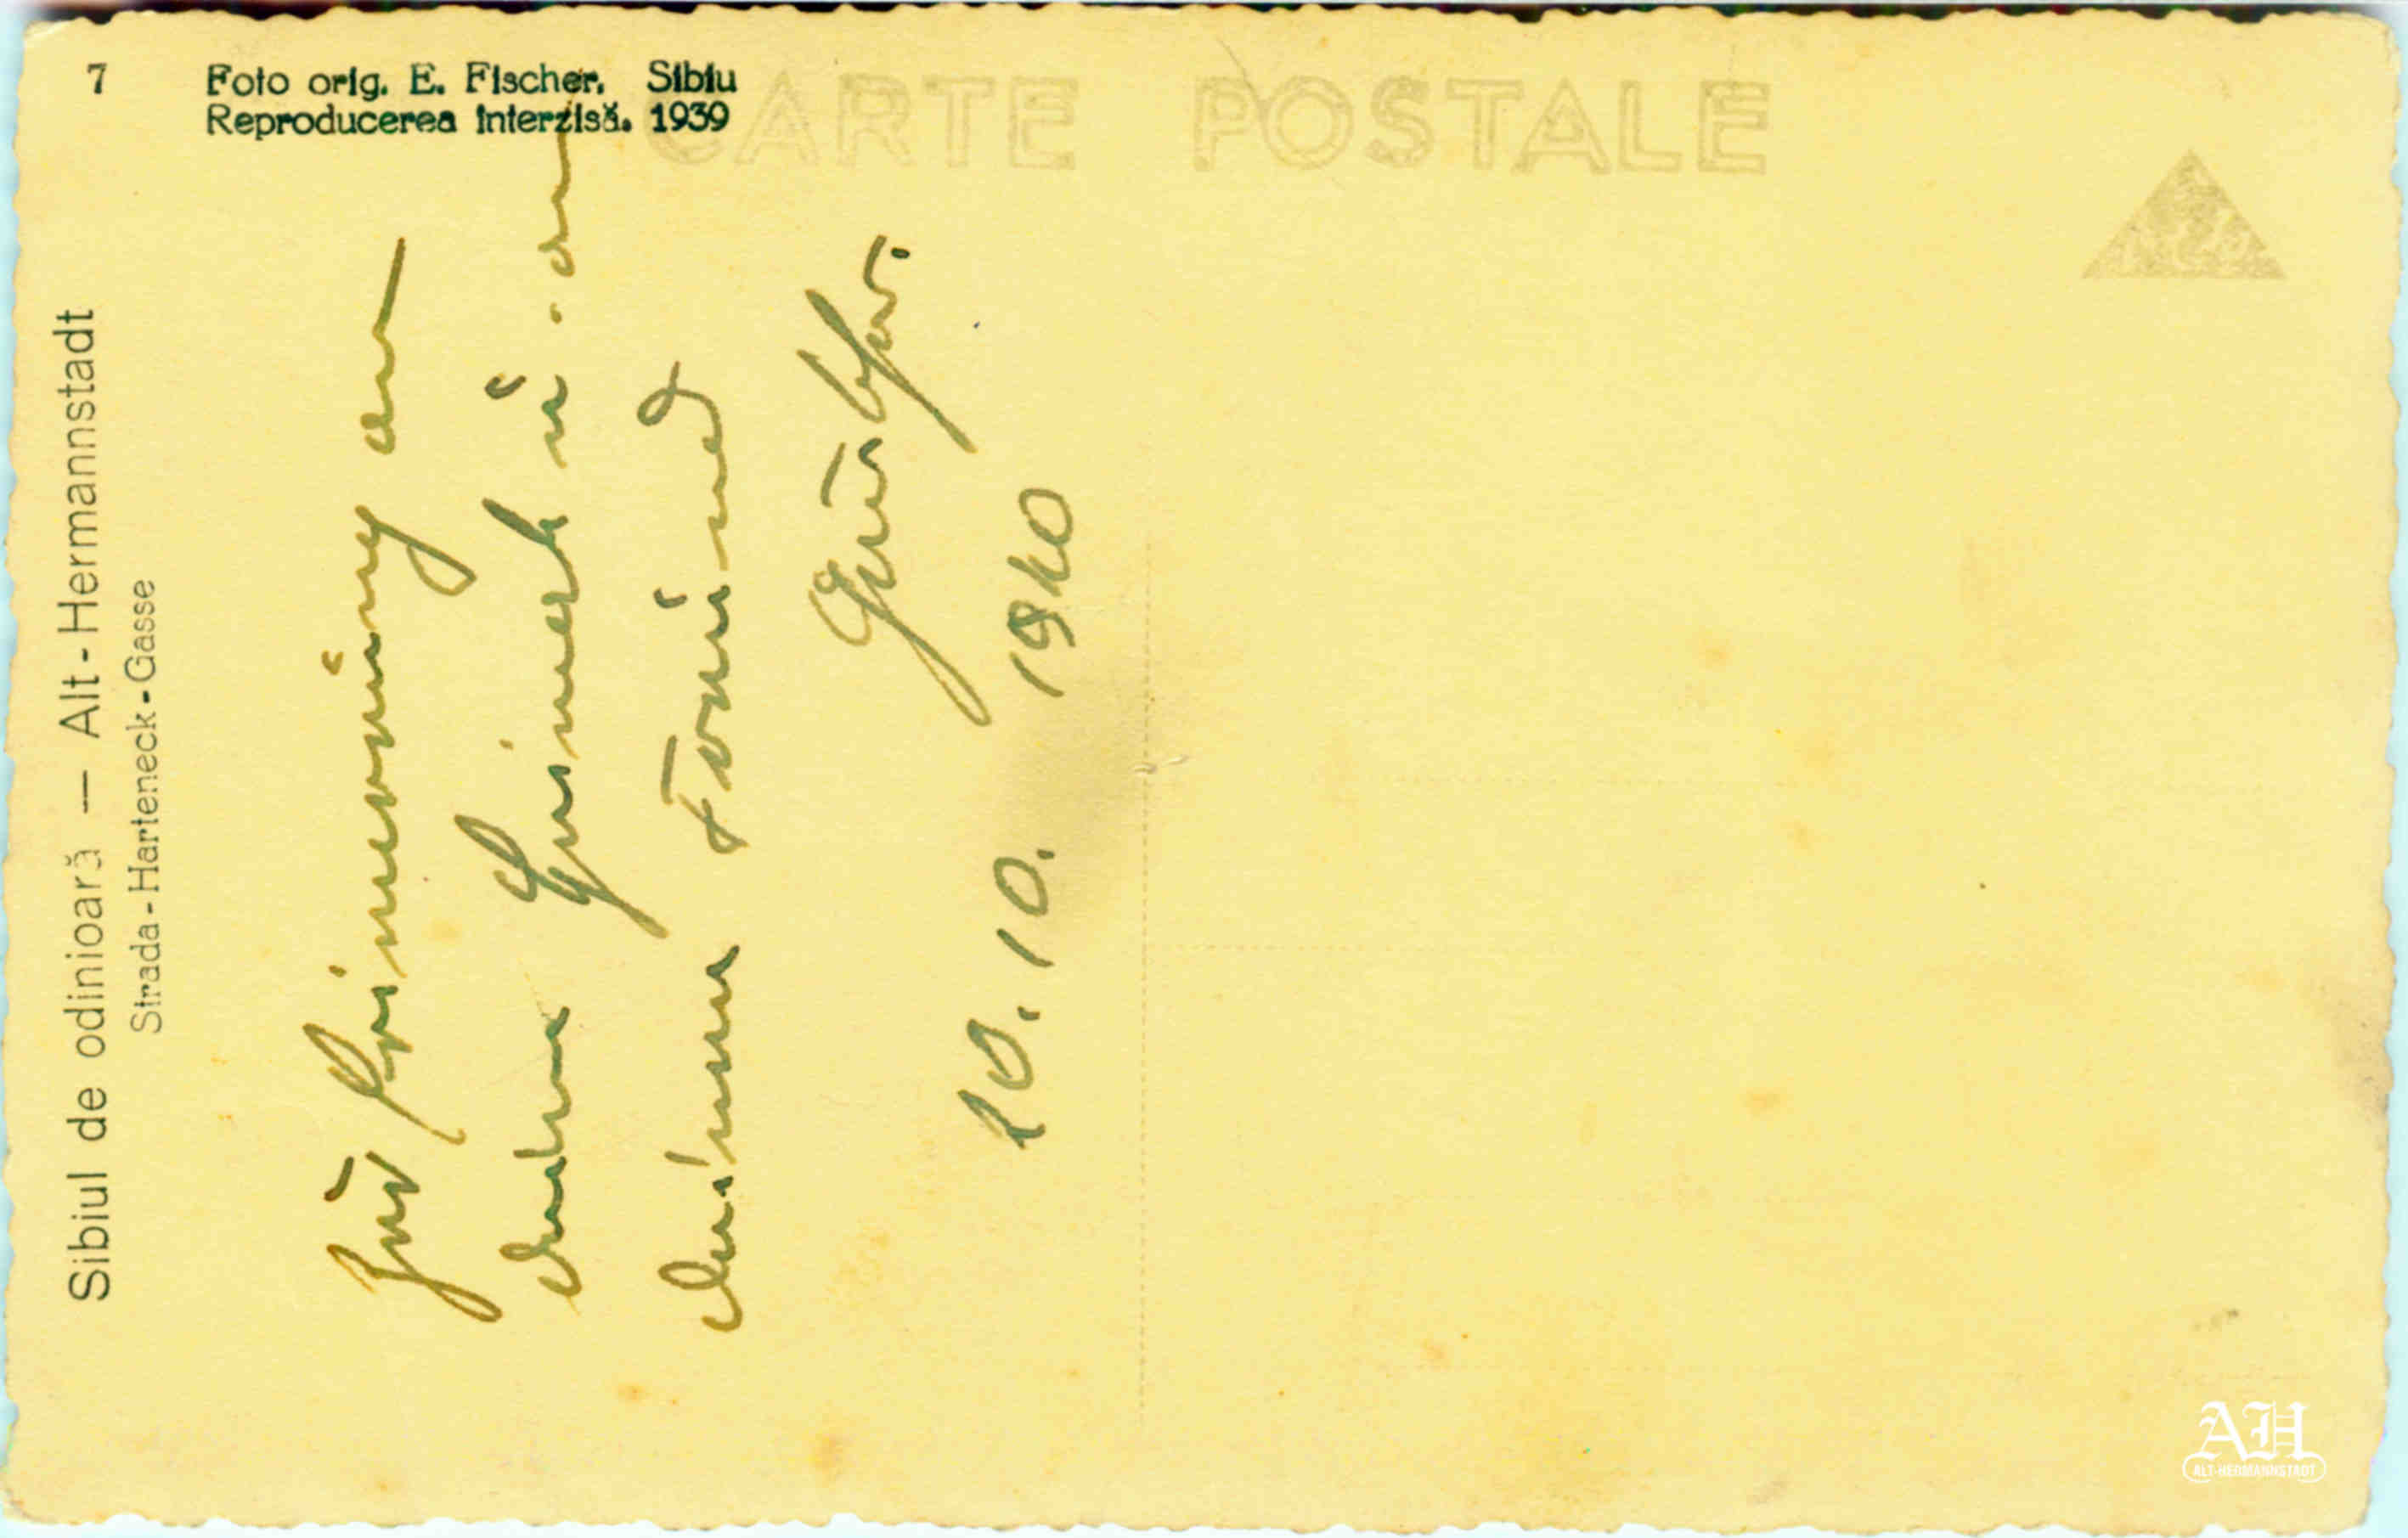 7
Foto orig. E. Fischer, Sibiu
Reproducerea interzisă. 1939
CARTE POSTALE
Sibiul de odinioară — Alt-Hermannstadt
Strada-Harteneck-Gasse
Zur Erinnerung an
deine Heimat u. an
deinen Freund
10. 10. 1940
AH
ALT-HERMANNSTADT